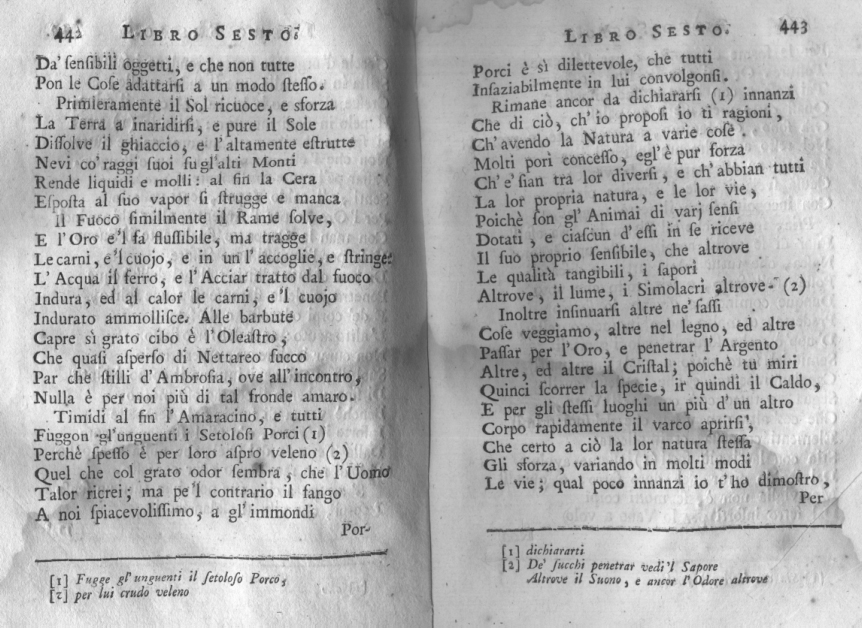 442 LIBRO SESTO.
Da' ſenſibili oggetti, e che non tutte
Pon le Coſe adattarſi a un modo ſteſſo.
Primieramente il Sol ricuoce, e sforza
La Terra a inaridirſi, e pure il Sole
Diſſolve il ghiaccio, e l'altamente eſtrutte
Nevi co' raggi ſuoi ſu gl'alti Monti
Rende liquidi e molli: al fin la Cera
Eſpoſta al ſuo vapor ſi ſtrugge e manca
Il Fuoco ſimilmente il Rame ſolve,
E l'Oro e'l fa fluſſibile, ma tragge
Le carni, e'l cuojo, e in un l'accoglie, e ſtringe:
L'Acqua il ferro, e l'Acciar tratto dal fuoco
Indura, ed al calor le carni, e'l cuojo
Indurato ammolliſce. Alle barbute
Capre sì grato cibo è l'Oleaſtro,
Che quaſi aſperſo di Nettareo ſucco
Par che ſtilli d'Ambroſia, ove all'incontro,
Nulla è per noi più di tal fronde amaro.
Timidi al fin l'Amaracino, e tutti
Fuggon gl'unguenti i Setoloſi Porci (1)
Perchè ſpeſſo è per loro aſpro veleno (2)
Quel che col grato odor ſembra, che l'Uomo
Talor ricrei; ma pe'l contrario il fango
A noi ſpiacevoliſſimo, a gl'immondi
Por-
[1] Fugge gl'unguenti il ſetoloſo Porco,
[2] per lui crudo veleno
LIBRO SESTO. 443
Porci è sì dilettevole, che tutti
Inſaziabilmente in lui convolgonſi.
Rimane ancor da dichiararſi (1) innanzi
Che di ciò, ch'io propoſi io ti ragioni,
Ch'avendo la Natura a varie coſe
Molti pori conceſſo, egl'è pur forza
Ch'e' ſian tra lor diverſi, e ch'abbian tutti
La lor propria natura, e le lor vie,
Poichè ſon gl'Animai di varj ſenſi
Dotati, e ciaſcun d'eſſi in ſe riceve
Il ſuo proprio ſenſibile, che altrove
Le qualità tangibili, i ſapori
Altrove, il lume, i Simolacri altrove (2)
Inoltre inſinuarſi altre ne' ſaſſi
Coſe veggiamo, altre nel legno, ed altre
Paſſar per l'Oro, e penetrar l'Argento
Altre, ed altre il Criſtal; poichè tu miri
Quinci ſcorrer la ſpecie, ir quindi il Caldo,
E per gli ſteſſi luoghi un più d'un altro
Corpo rapidamente il varco aprirſi,
Che certo a ciò la lor natura ſteſſa
Gli sforza, variando in molti modi
Le vie; qual poco innanzi io t'ho dimoſtro,
Per
[1] dichiararti
[2] De' ſucchi penetrar vedi'l Sapore
Altrove il Suono, e ancor l'Odore altrove